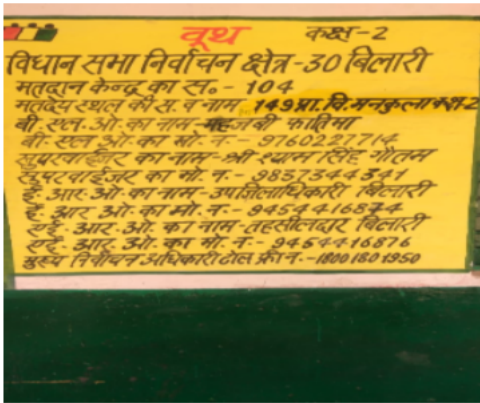 वूथ कक्ष-2
विधान सभा निर्वाचन क्षेत्र-30 बिलारी
मतदान केन्द्र का स.- 104
मतदेय स्थल की स. व नाम 149 प्रा. वि. मनकुला कक्ष-2
बी. एल. ओ. का नाम- महजबी फातिमा
बी. एल. ओ. का मो. न.- 9760227714
सुपरवाईजर का नाम-श्री श्याम सिंह गौतम
सुपरवाईजर का मो. न.- 9837344341
ई. आर. ओ. का नाम-उपजिलाधिकारी बिलारी
ई. आर. ओ. का मो. न.- 9454416874
एई. आर. ओ. का नाम तहसीलदार बिलारी
एई. आर. ओ. का मो. न.- 9454416876
मुख्य निर्वाचन अधिकारी टोल फ्री न.-18001801950